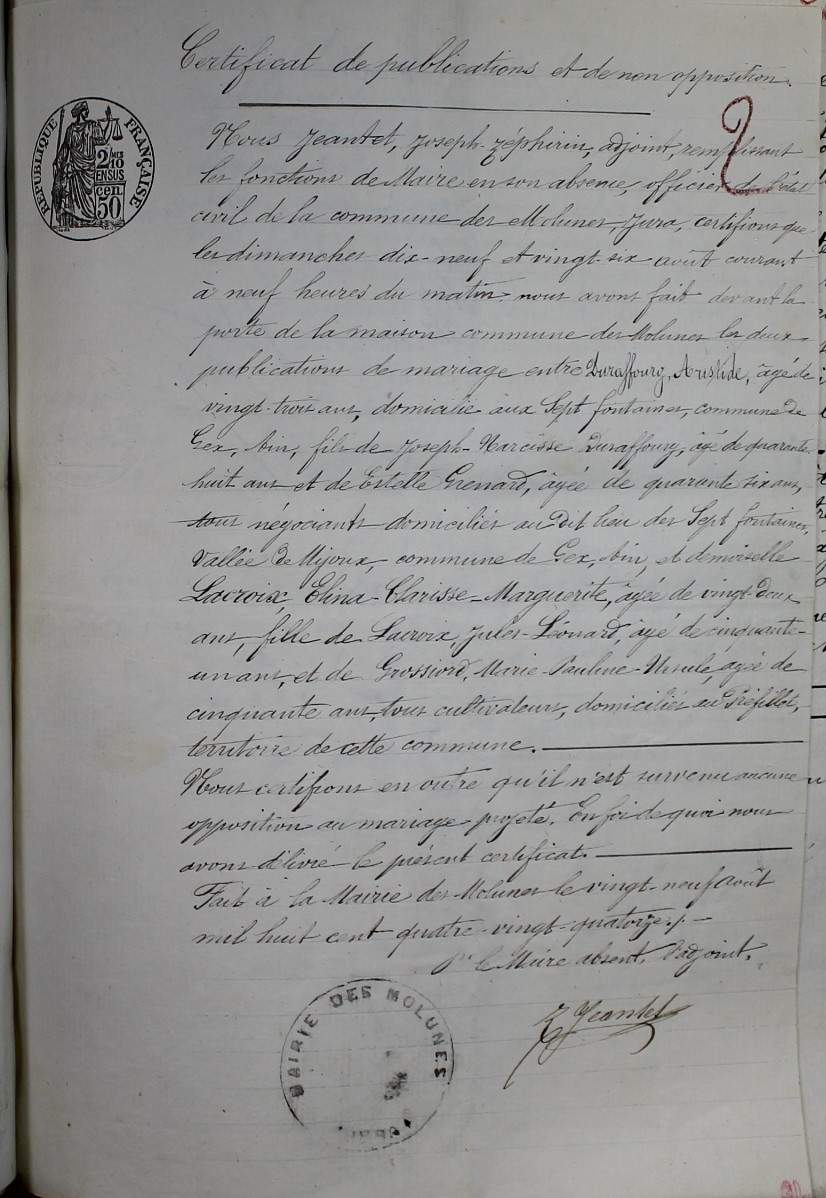 Certificat de publications et de non opposition.
RÉPUBLIQUE FRANÇAISE
2/10
EN SUS
50 cen
2
Nous Jeantet, Joseph-Zéphirin, adjoint, remplissant
les fonctions de Maire en son absence, officier de l'état
civil de la commune des Molunes, Jura, certifions que
les dimanches dix-neuf et vingt-six août courant
à neuf heures du matin nous avons fait devant la
porte de la maison commune des Molunes les deux
publications de mariage entre Duraffourg, Aristide, âgé de
vingt-trois ans, domicilié aux Sept fontaines, commune de
Gex, Ain, fils de Joseph-Narcisse Duraffourg, âgé de quarante-
huit ans et de Estelle Grenard, âgée de quarante six ans,
tous négociants domiciliés au dit lieu des Sept fontaines,
Vallée de Mijoux, commune de Gex, Ain, et demoiselle
Lacroix, Elina-Clarisse-Marguerite, âgée de vingt-deux
ans, fille de Lacroix, Jules-Léonard, âgé de cinquante-
un ans, et de Grossiord, Marie-Pauline-Ursule, âgée de
cinquante ans, tous cultivateurs, domiciliés au Préfillet,
territoire de cette commune.
Nous certifions en outre qu'il n'est survenu aucune
opposition au mariage projeté. En foi de quoi nous
avons délivré le présent certificat.
Fait à la Mairie des Molunes le vingt-neuf août
mil huit cent quatre-vingt-quatorze./.
Pr le Maire absent, l'adjoint,
Z Jeantet
MAIRIE DES MOLUNES